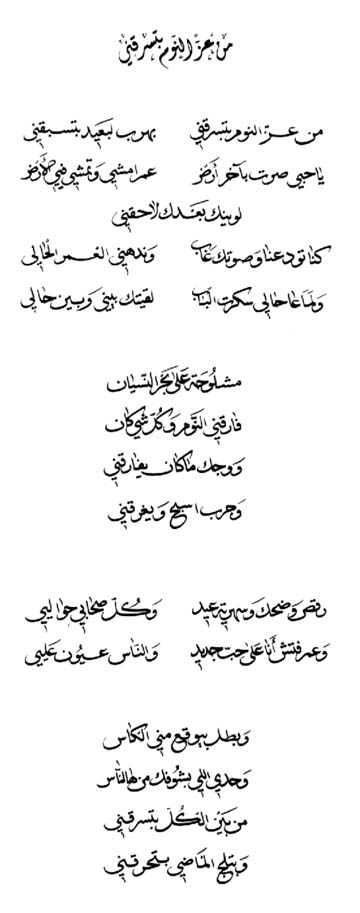 من عزّ النوم بتسرقني
من عـز النوم بتسرقني بهرب لبعيد بتسبقني
يا حبي صرت بآخر أرض عم امشي وتمشي فيي الأرض
لوينك بعدك لاحقني
كنا تودعنا وصوتك غاب وندهني العمر الخالي
ولمّا عا حالي سكرت الباب لقيتك بيني وبين حالي
مشلوحة على بحر النسيان
فارقني النوم وكلّ شي كان
ووجك ما كان يفارقني
وجرب اسبح ويغرقني
رقص وضحك وسهرية عيد وكلّ صحابي حواليي
وعم فتش أنا على حبّ جديد والناس عيون عليي
وبطلـ بيوقع مني الكاس
وحدي اللي بشوفك من هالناس
من بين الكلّ بتسرقني
وبتلج الماضي بتحرقني